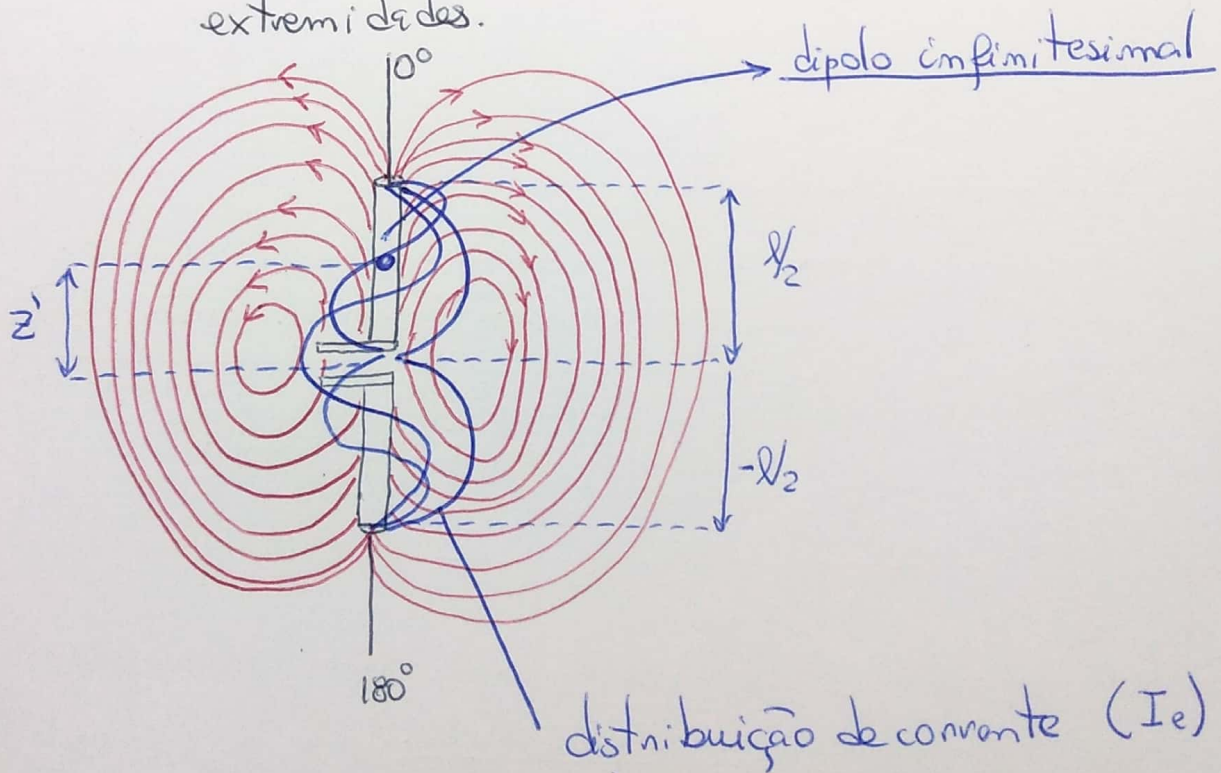 extremidades.
0°
dipolo infinitesimal
l/2
z'
-l/2
180°
distribuição de corrente (Ie)